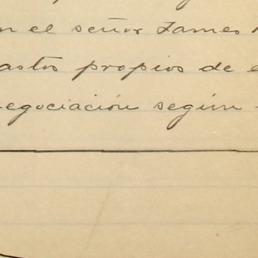 n el señor James
astos propios de e
egociación según